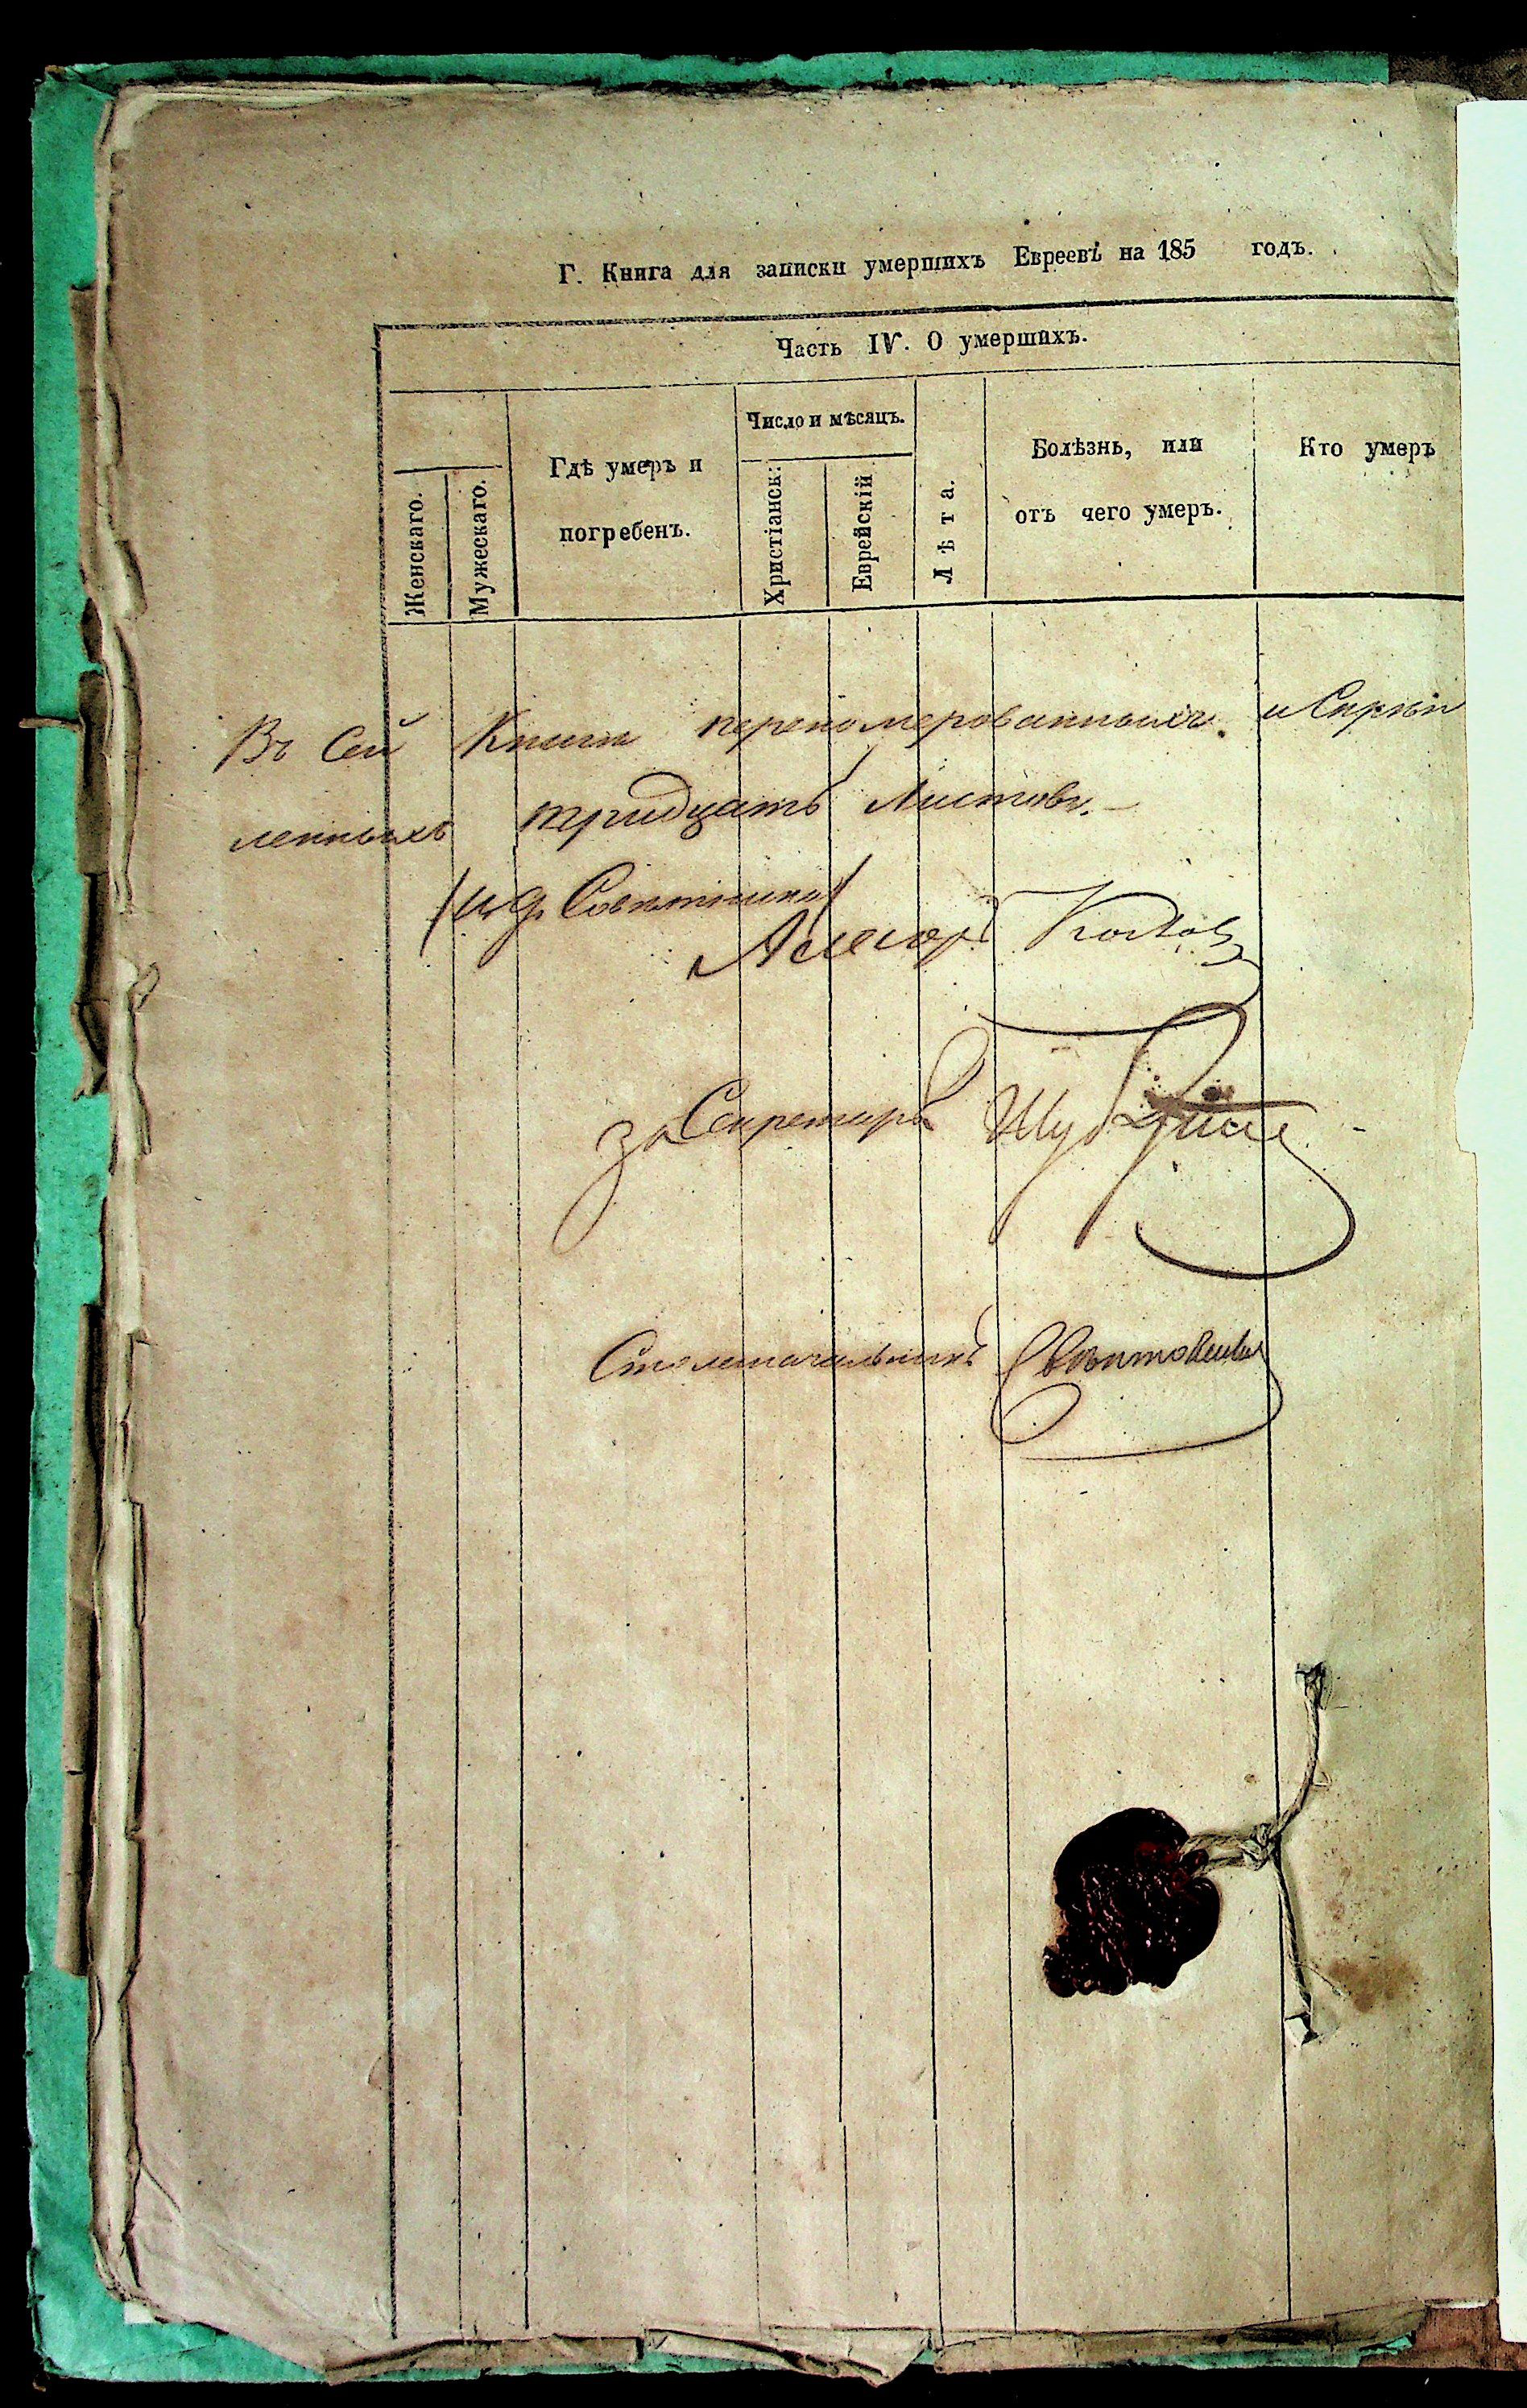 Г. Книга для записки умершихъ Евреевъ на 185 годъ.
Часть IV. О умершихъ.
Женскаго.
Мужескаго.
Гдѣ умеръ и
погребенъ.
Число и мѣсяцъ.
Христіанск:
Еврейскій
Лѣта.
Болѣзнь, или
отъ чего умеръ.
Кто умеръ
Въ Сей Книги переномерованныхъ и Скрѣп
ленныхъ тридцать Листовъ.—
/И. д. Совѣтника/
Асесоръ
За Секретаря
Столоначальникъ